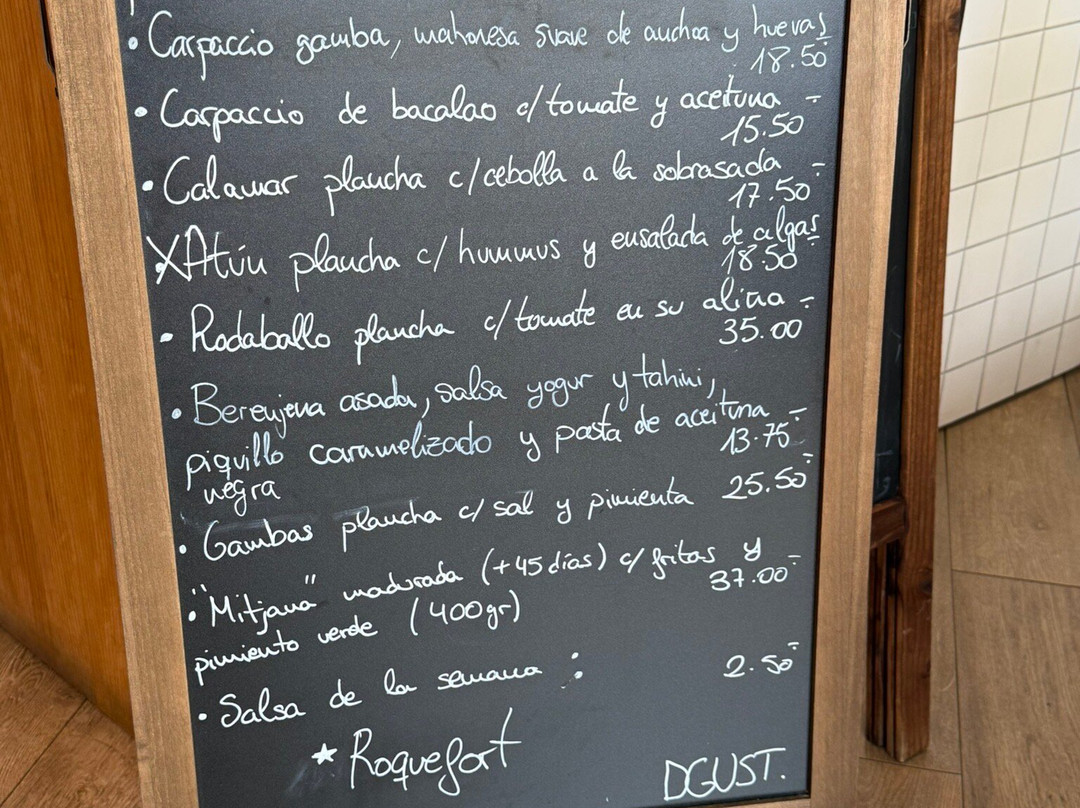 • Carpaccio gamba, mahonesa suave de anchoa y huevas
18.50
• Carpaccio de bacalao c/tomate y aceituna -
15.50
• Calamar plancha c/cebolla a la sobrasada -
17.50
X Atún plancha c/ hummus y ensalada de algas
18.50
• Rodaballo plancha c/tomate en su aliño -
35.00
• Berenjena asada, salsa yogur y tahini,
piquillo caramelizado y pasta de aceituna -
negra 13.75
• Gambas plancha c/ sal y pimienta 25.50
• "Mitjana" madurada (+45 días) c/ fritas y
pimiento verde (400gr) 37.00
• Salsa de la semana : 2.50
★ Roquefort
DGUST.